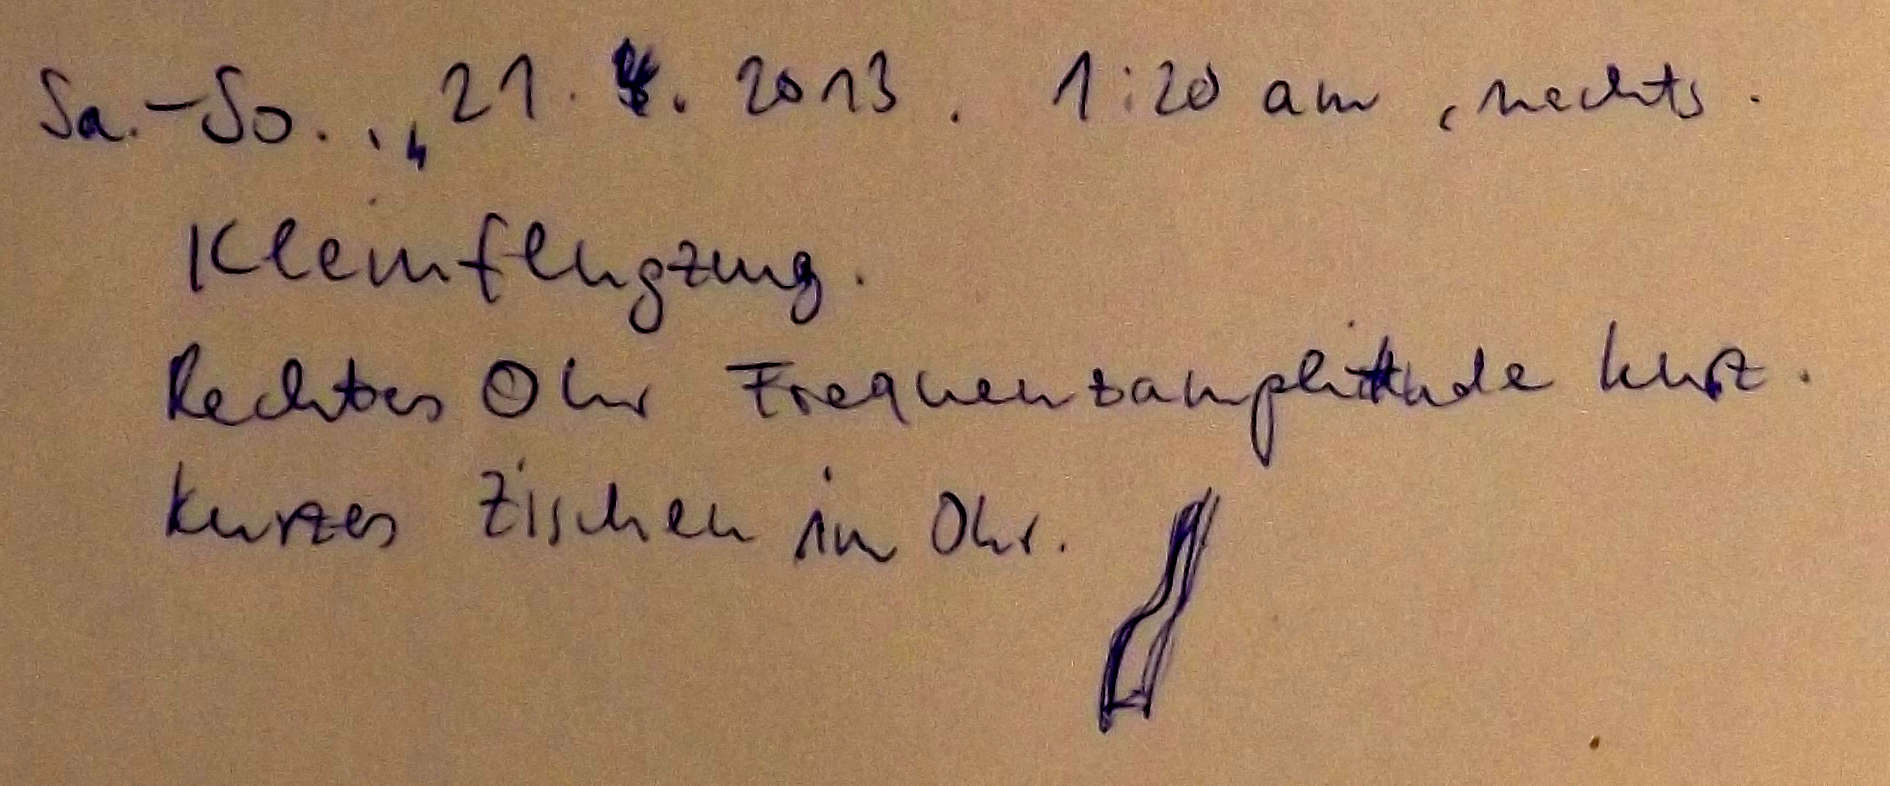 Sa.-So. ., 21. . 2013. 1:20 am, nachts.
Kleinflugzeug.
Rechtes Ohr Frequenzamplitude kurz.
kurzes Zischen im Ohr.